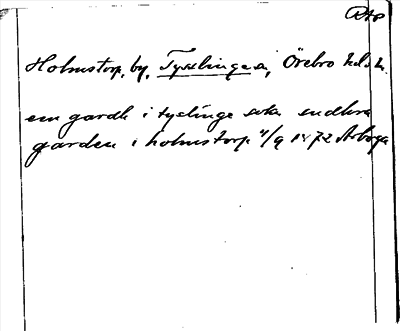 Holmstorp, by, Tysslinge sn, Örebro hd
en gardh i tyslinge sokn sudhra
garden i holmstorp 4/9 1472 Arboga